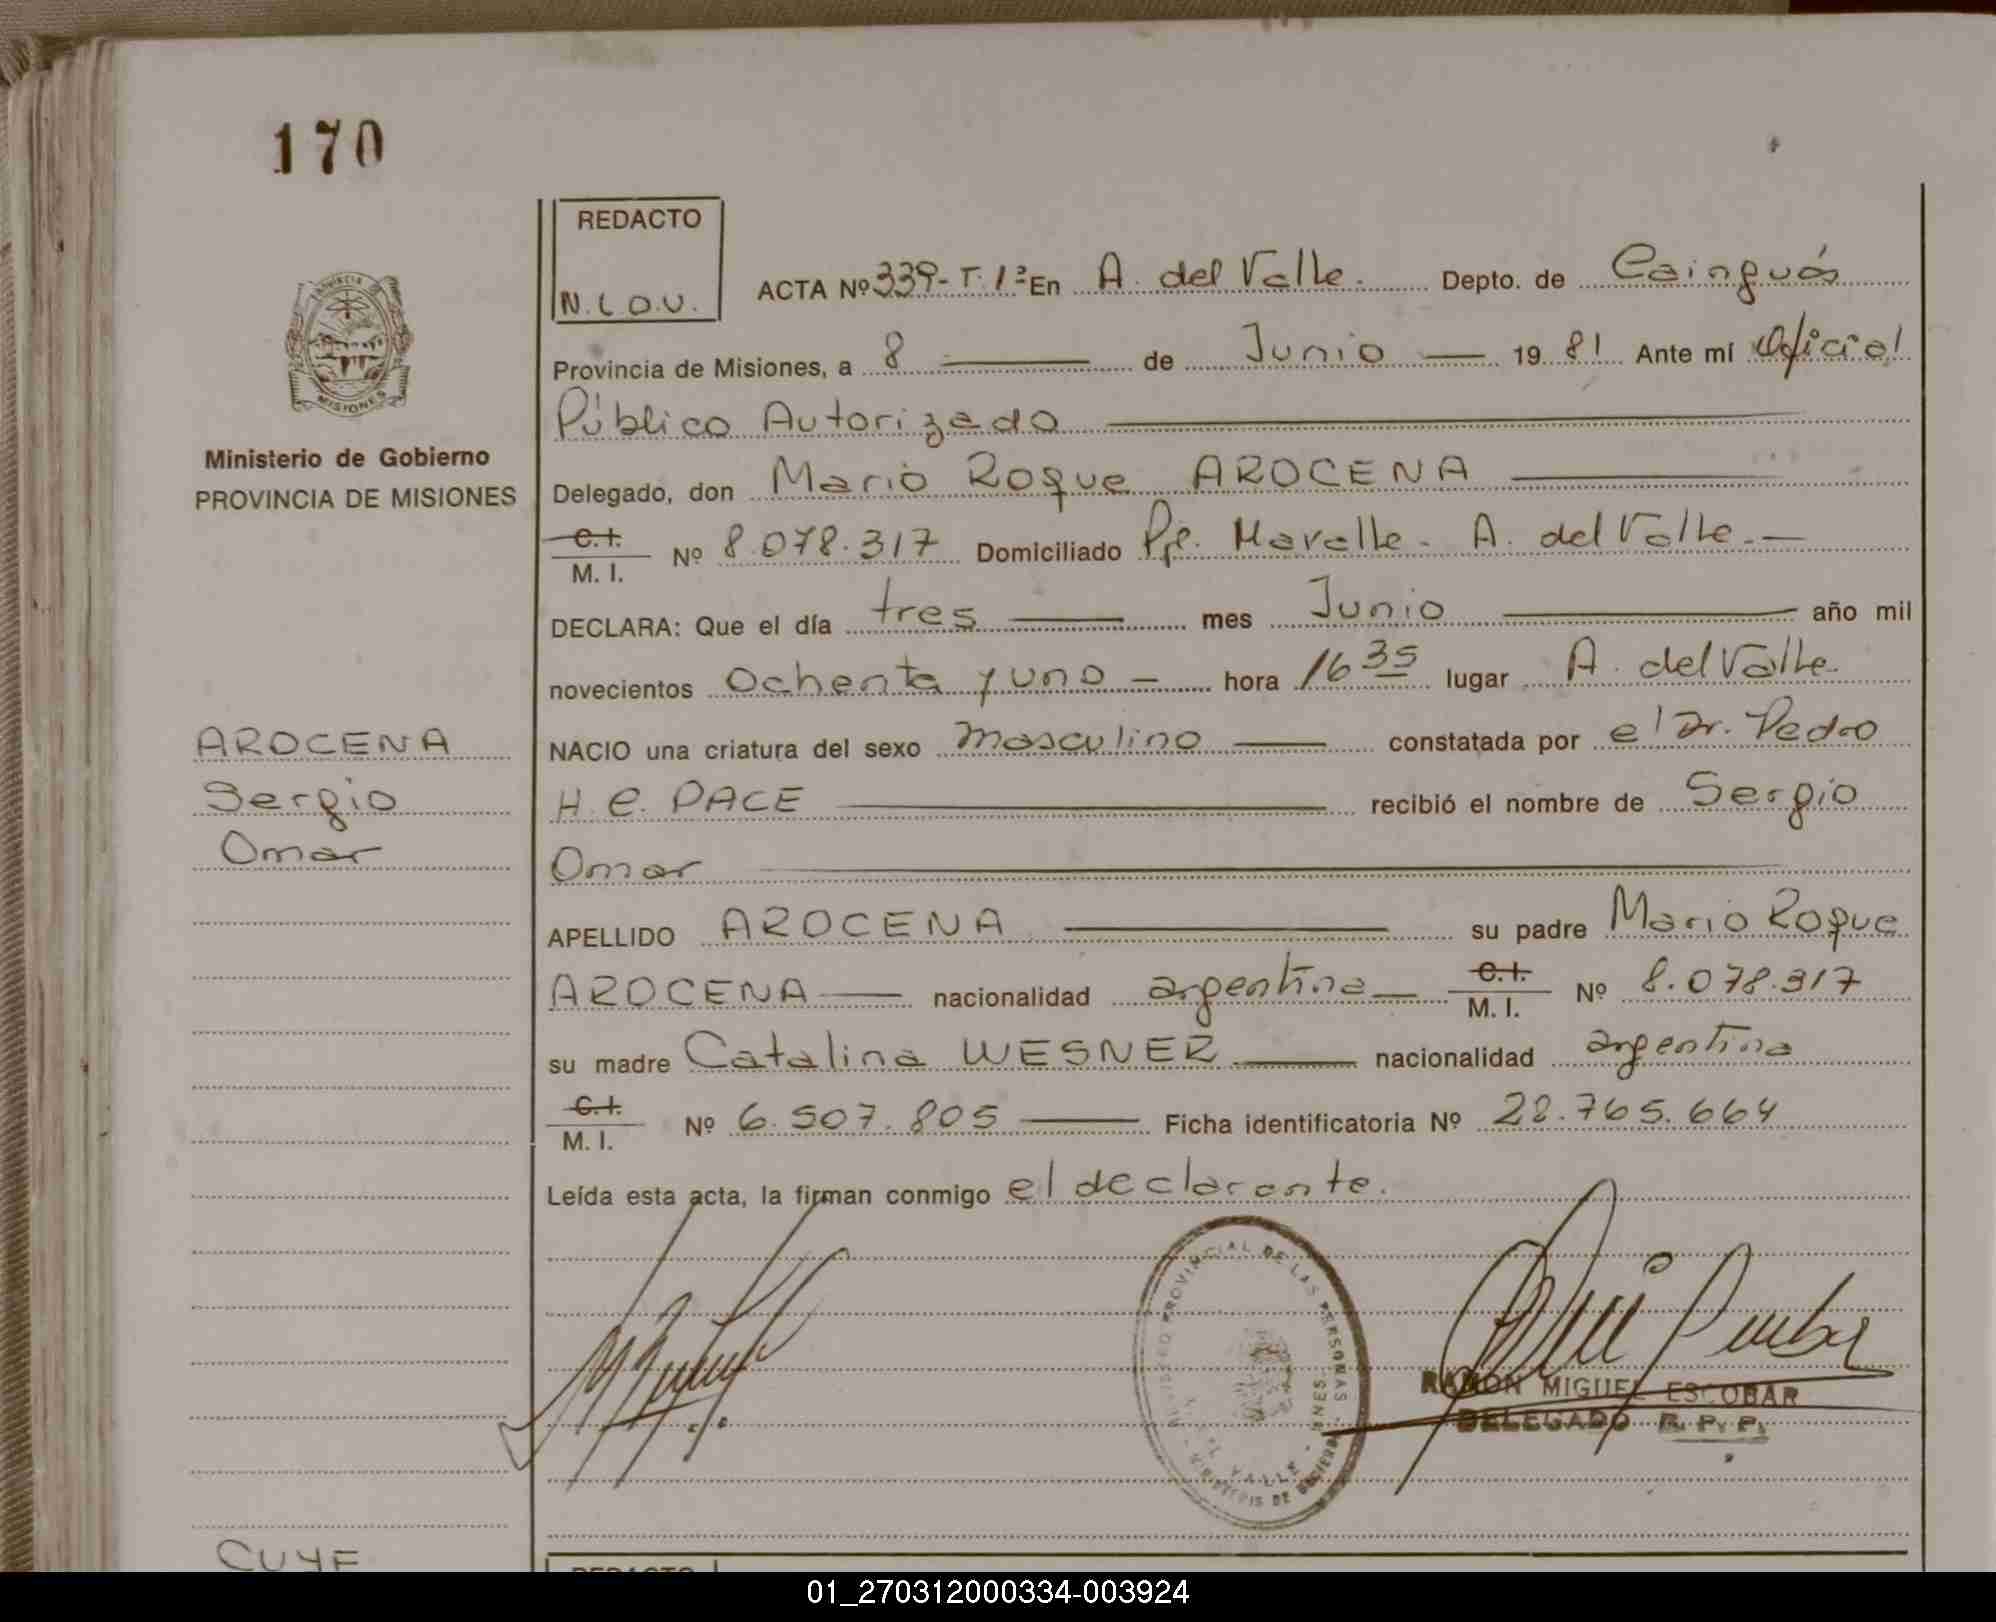 170
REDACTO
N.L.O.V.
ACTA Nº 339-T.1º En A. del Valle. Depto. de Cainguás
Provincia de Misiones, a 8 de Junio 1981 Ante mí Oficial
Público Autorizado
Delegado, don Mario Roque AROCENA
C.I.
M. I. Nº 8.078.317 Domiciliado Pje. Maralle. A. del Valle.
DECLARA: Que el día tres mes Junio año mil
novecientos Ochenta y uno hora 16 35 lugar A. del Valle.
NACIO una criatura del sexo masculino constatada por el Dr. Pedro
H. C. PACE recibió el nombre de Sergio
Omar
APELLIDO AROCENA su padre Mario Roque
AROCENA nacionalidad argentina C.I. M. I. Nº 8.078.317
su madre Catalina WESNER nacionalidad argentina
C.I.
M. I. Nº 6.507.805 Ficha identificatoria Nº 28.765.664
Leída esta acta, la firman conmigo el declarante.
PROVINCIA DE
MISIONES
Ministerio de Gobierno
PROVINCIA DE MISIONES
AROCENA
Sergio
Omar
PROVINCIAL DE LAS PERSONAS
VALLE
RAMON MIGUEL ESCOBAR
DELEGADO R. P. P.
CUYE
REDACTO
01_270312000334-003924